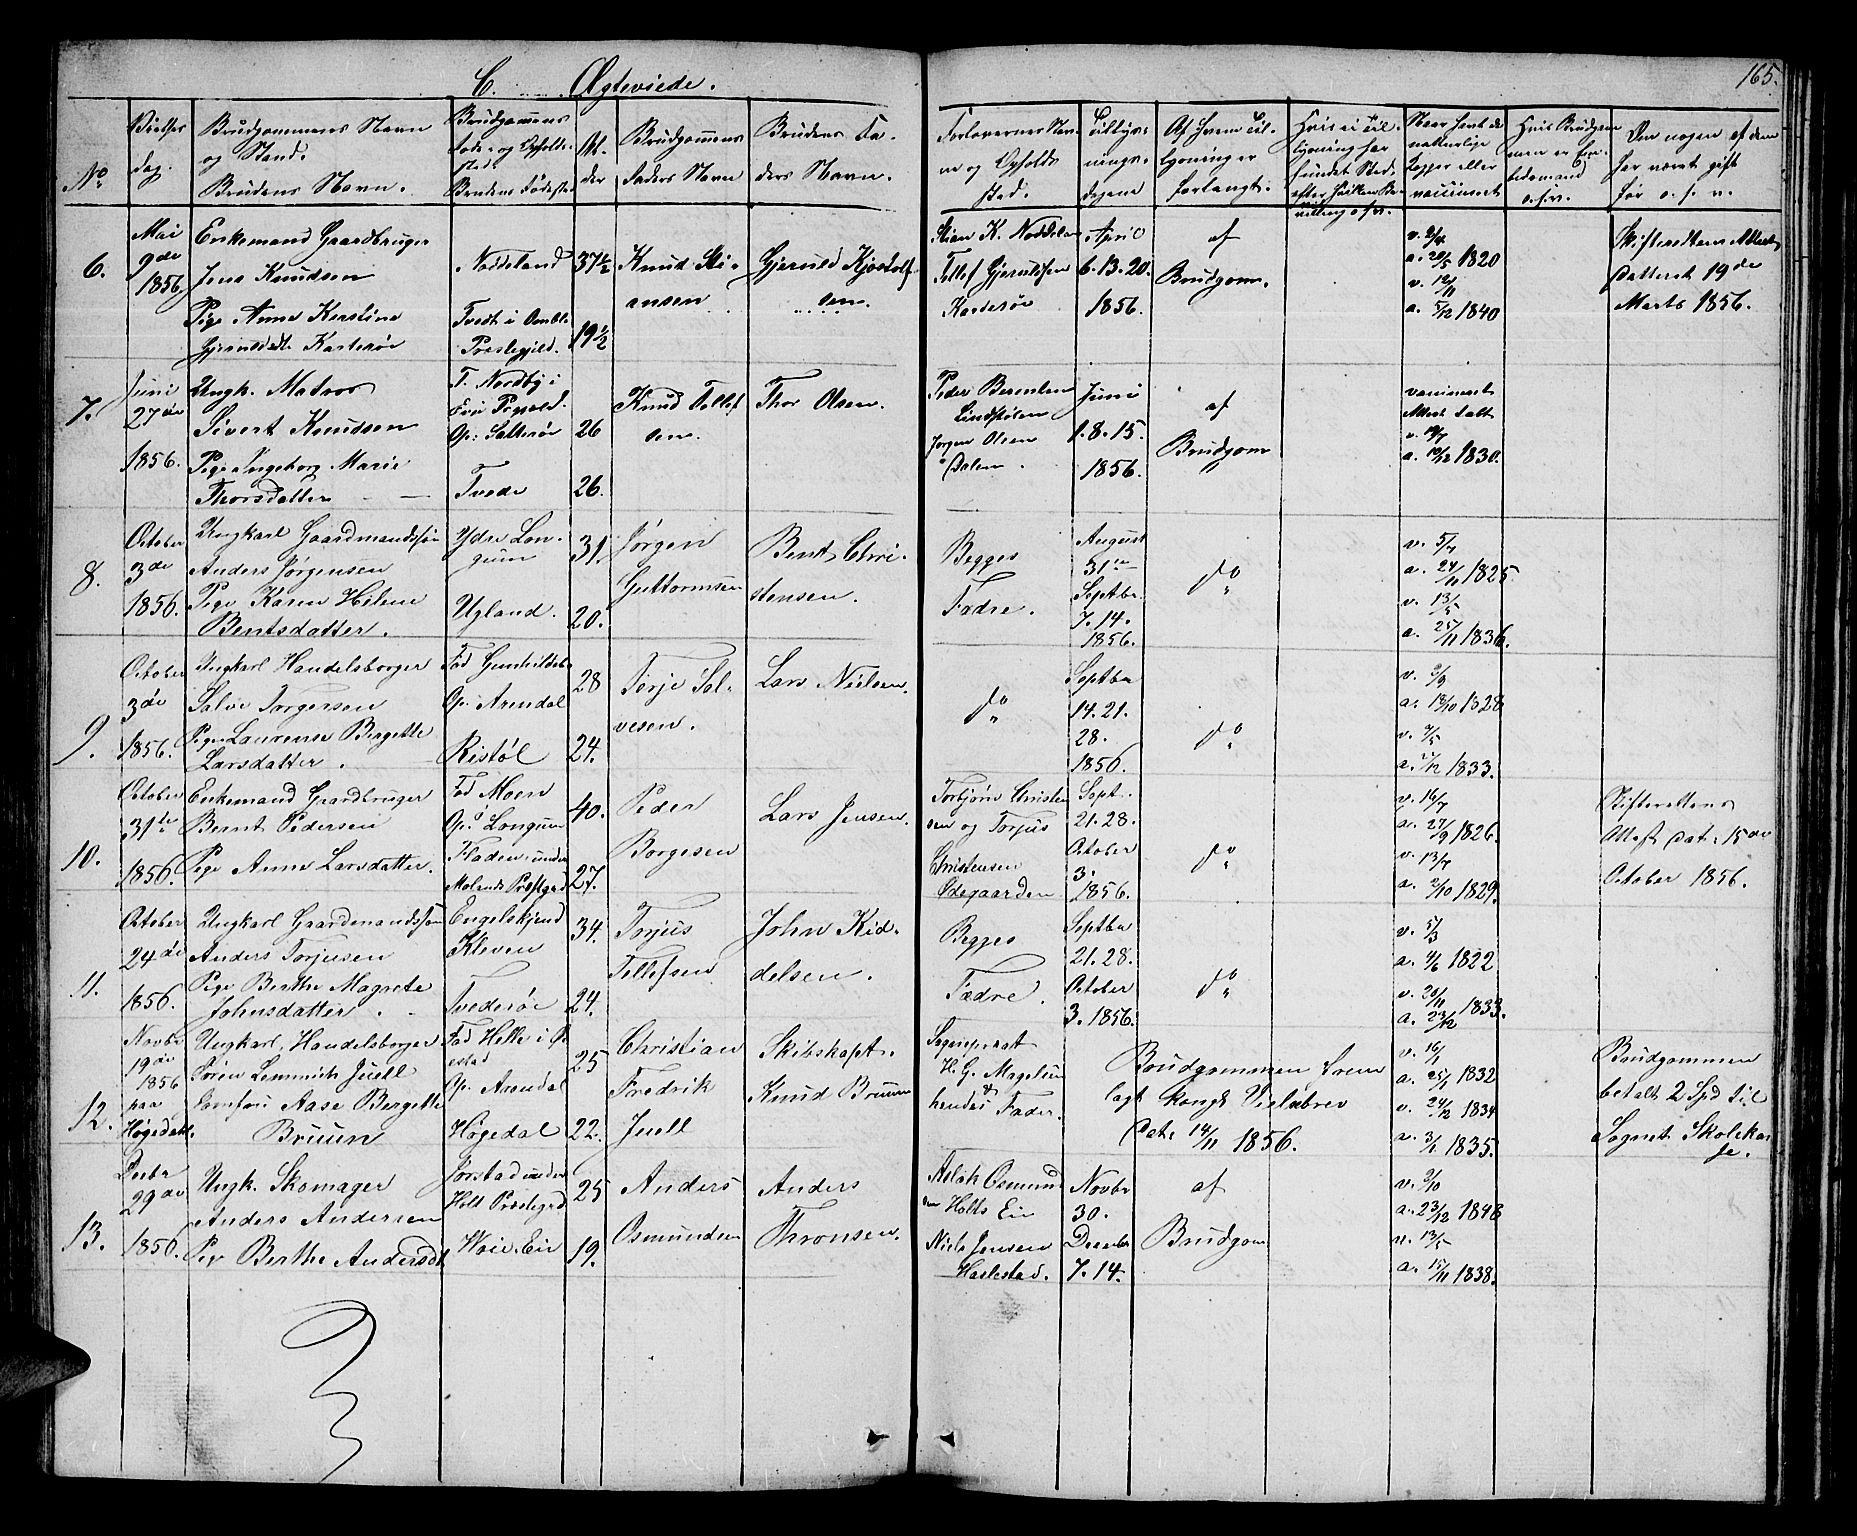 C. Ægteviede.
165.
No
Vielses
dag.
Brudgommens Navn
og Stand.
Brudens Navn.
Brudgommens
Føde- og Opholds-
sted
Brudens Fødested
Al-
der
Brudgommens
Faders Navn
Brudens Fa-
ders Navn.
Forlovernes Nav-
ne og Opholds
sted.
Tillys-
nings-
dagene
Af hvem til-
lysning er
forlangt.
Hvis ei til-
lysning har
fundet Sted,
efter hvilken Be-
villing o.s.v.
Naar havt de
naturlige
Kopper eller
vaccineret
Hvis Brudgom-
men er En-
kemand
o.s.v.
Om nogen af dem
har været gift
før o.s.v.
6.
Mai
9de
1856
Enkemand Gaardbruger
Jens Knudsen
Pige Anne Kerstine
Gjeruldsdtr Kasterøe
Noddeland
Tvedt i Omble
Præstegjeld.
37 1/2
19 1/2
Knud Sti-
ansen
Gjeruld Kjostolf-
sen.
Stian K. Noddelan
Tellef Gjeruldsen
Kasterøe
April
6. 13. 20.
1856.
af
Brudgom.
a. 20/5 1820
v. 12/11
a. 5/12 1840
Skifterettens Attest
Datteret 19de
Marts 1856.
7.
Juni
27de
1856.
Ungk. Matros
Sivert Knudsen
Pige Ingeborg Marie
Thorsdatter
F. Nordby i
Evie Prgjeld.
Op. Salterøe
Tvede
26
26.
Knud Tellef
sen.
Thor Olsen.
Peder Berentsen
Lindstølen
Jørgen Olsen
Dalen.
Juni
1. 8. 15.
1856.
af
Brudgom
vaccineret
Attest talt
a. 10/12 1830.
8.
October
3de
1856.
Ungkarl Gaardmandssøn
Anders Jørgensen
Pige Karen Helene
Bentsdatter.
Ydre Lon-
gum
Ugland.
31.
20.
Jørgen
Guttormsen
Bent Chri-
stensen.
Begges
Fædre.
August
31te
Septbr
7. 14.
1856.
do
v. 5/7
a. 24/11 1825
v. 13/5
a. 25/11 1836.
9.
October
3de
1856.
Ungkarl Handelsborger
Salve Torgersen
Pige Laurense Bergette
Larsdatter.
Fød Gunhildsb
Op. Arendal
Ristøl
28
24.
Terje Sal-
vesen.
Lars Nielsen.
do
Septbr
14. 21.
28.
1856.
do
a. 13/10 1828
a. 1/12 1833.
10.
October
31te
1856.
Enkemand Gaardbruger
Bernt Pedersen
Pige Anne Larsdatter.
Fød Moen
Op. Longum
Fladen under
Molands Præstgjd
40.
27.
Peder
Borgesen
Lars Jensen.
Torbjørn Christen
sen og Torjus
Christensen
Ødegaarden
Sept.
21. 28.
October
3.
1856.
do
v. 16/7
a. 27/9 1826.
v. 13/7
a. 2/10 1829.
Skifterettens
Attest Dat. 15de
October 1856.
11.
October
24de
1856.
Ungkarl Gaardmandssøn
Anders Torjusen
Pige Berthe Magrete
Johnsdatter.
Engelskjend
Kleven
Tvederøe
34.
24.
Torjus
Tellefsen
John Kid-
delsen.
Begges
Fædre.
Septbr
21. 28.
October
3. 1856.
do
v. 5/3
a. 4/6 1822
v. 20/11
a. 23/12 1833.
12.
Novbr
19de
1856
paa
Høgedahl.
Ungkarl, Handelsborger
Søren Lemmich Juell
Jomfru Aase Bergette
Bruun
Fød Helle i Ø
estad
Op. Arendal
Høgedal
25
22.
Christian
Fredrik
Juell
Skibskapt.
Knud Bruun
Sagenpræst
H. G. Magelsen
&
hendes Fader.
Brudgommen frem
lagt Kongl Vielsbrev
Dat. 14/11 1856.
v. 16/1
a. 25/1 1832
v. 24/12 1834
a. 3/1 1835.
Brudgommen
betalt 2 Spd til
Sognets Skolekas
se.
13.
Decbr
29de
1856.
Ungk. Skomager
Anders Andersen
Pige Berthe Andersdt
Jorstad under
Holt Præstegjd
Woie. Eie
25
19.
Anders
Osmundsen
Anders
Thronsen.
Aslak Osmund
sen Holts Eie
Niels Jensen
Harlestad.
Novbr
30.
Decembr
7. 14.
af
Brudgom
v. 2/10
a. 23/12 1848
v. 13/5
a. 15/11 1838.